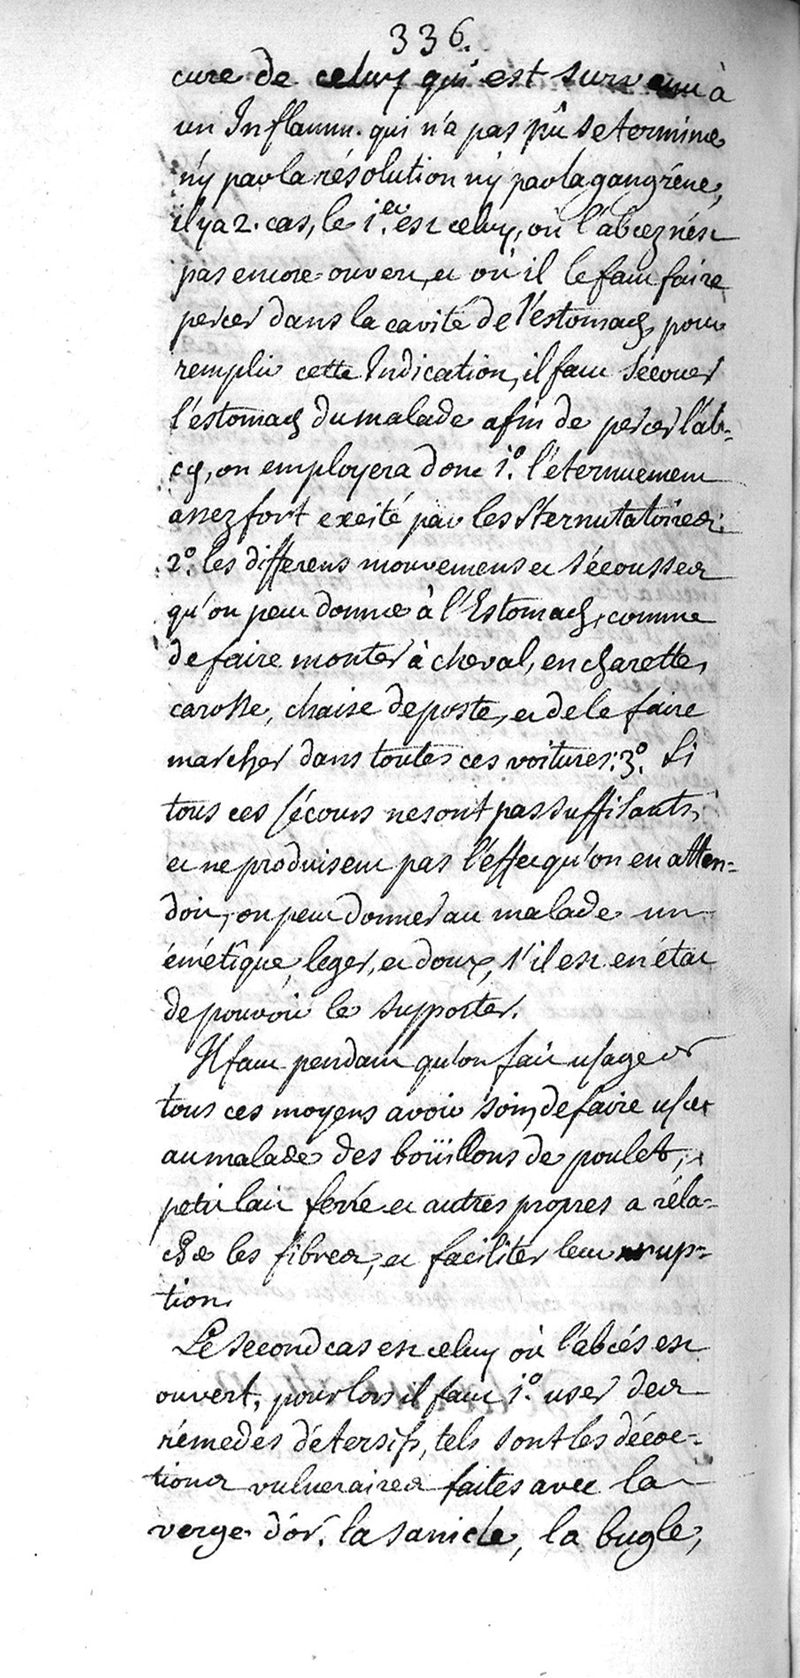 336.
cure de celuy qui est survenu à
un Inflamm. qui n'a pas pû se terminer
n'y par la résolution n'y par la gangréne,
il y a 2. cas, le 1.er est celuy, où l'abcez n'est
pas encore ouvert, et où il le faut faire
percer dans la cavité de l'estomach, pour
remplir cette Indication, il faut secouer
l'estomach du malade afin de percer l'ab-
cez, on employera donc 1.° l'éternuement
assez fort excité par les sternutatoires:
2.° les differens mouvemens et sécousses
qu'on peut donner à l'Estomach, comme
de faire monter à cheval, en charette,
carosse, chaise de poste, et de le faire
marcher dans toutes ces voitures: 3.° si
tous ces sécours ne sont pas suffisants,
et ne produisent pas l'effet qu'on en atten-
doit, on peut donner au malade un
émétîque, leger, et doux, s'il est en état
de pouvoir le supporter.
Il faut pendant qu'on fait usage de
tous ces moyens avoir soin, de faire user
au malade des boüillons de poulet,
petit lait ferré et autres propres a réla-
cher les fibres, et faciliter leur rup-
tion.
Le second cas est celuy où l'abcés est
ouvert, pour lors il faut 1.° user des
rémedes détersifs, tels sont les décoc-
tions vulneraires faites avec la
verge d'or, la sanicle, la bugle,